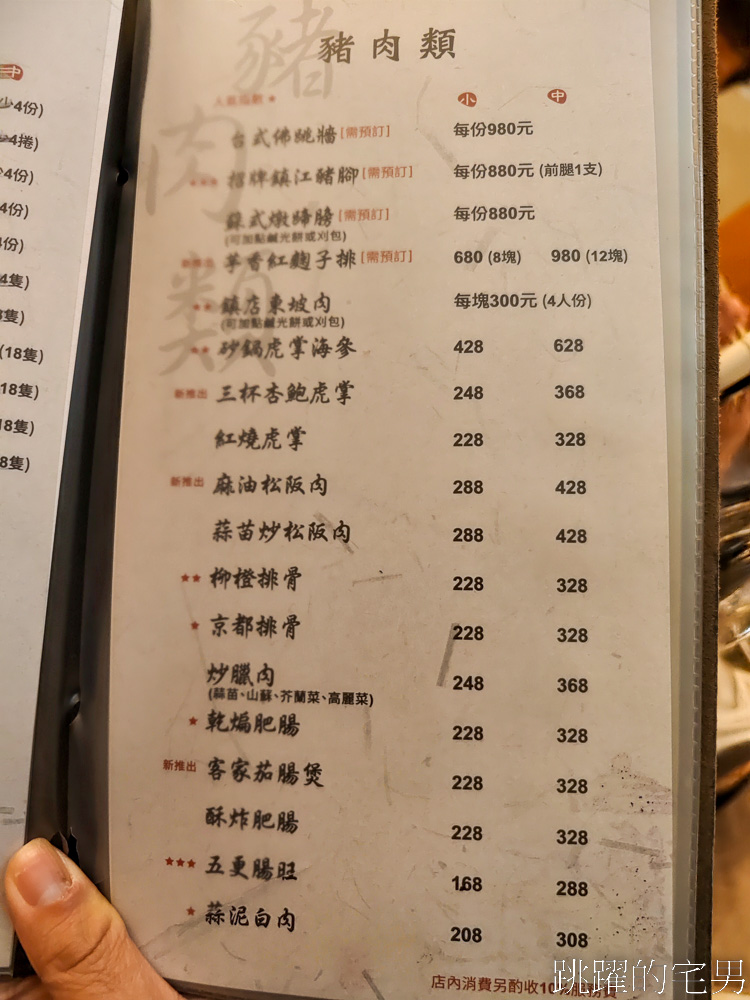 中
少4份)
4捲)
4份)
4份)
4份)
4隻)
(18隻)
18隻)
18隻)
8隻)
豬肉類
豬肉類
人氣指數 ★
小 中
台式佛跳牆[需預訂] 每份980元
★★★ 招牌鎮江豬腳[需預訂] 每份880元 (前腿1支)
蘇式燉蹄膀[需預訂] 每份880元
(可加點鹹光餅或刈包)
新推出 芋香紅麴子排[需預訂] 680 (8塊) 980 (12塊)
★★ 鎮店東坡肉 每塊300元 (4人份)
(可加點鹹光餅或刈包)
★★ 砂鍋虎掌海參 428 628
新推出 三杯杏鮑虎掌 248 368
紅燒虎掌 228 328
新推出 麻油松阪肉 288 428
蒜苗炒松阪肉 288 428
★★ 柳橙排骨 228 328
★ 京都排骨 228 328
炒臘肉 248 368
(蒜苗、山蘇、芥蘭菜、高麗菜)
★ 乾煸肥腸 228 328
新推出 客家茄腸煲 228 328
酥炸肥腸 228 328
★★★ 五更腸旺 168 288
★ 蒜泥白肉 208 308
店內消費另酌收10%服務費
跳躍的宅男